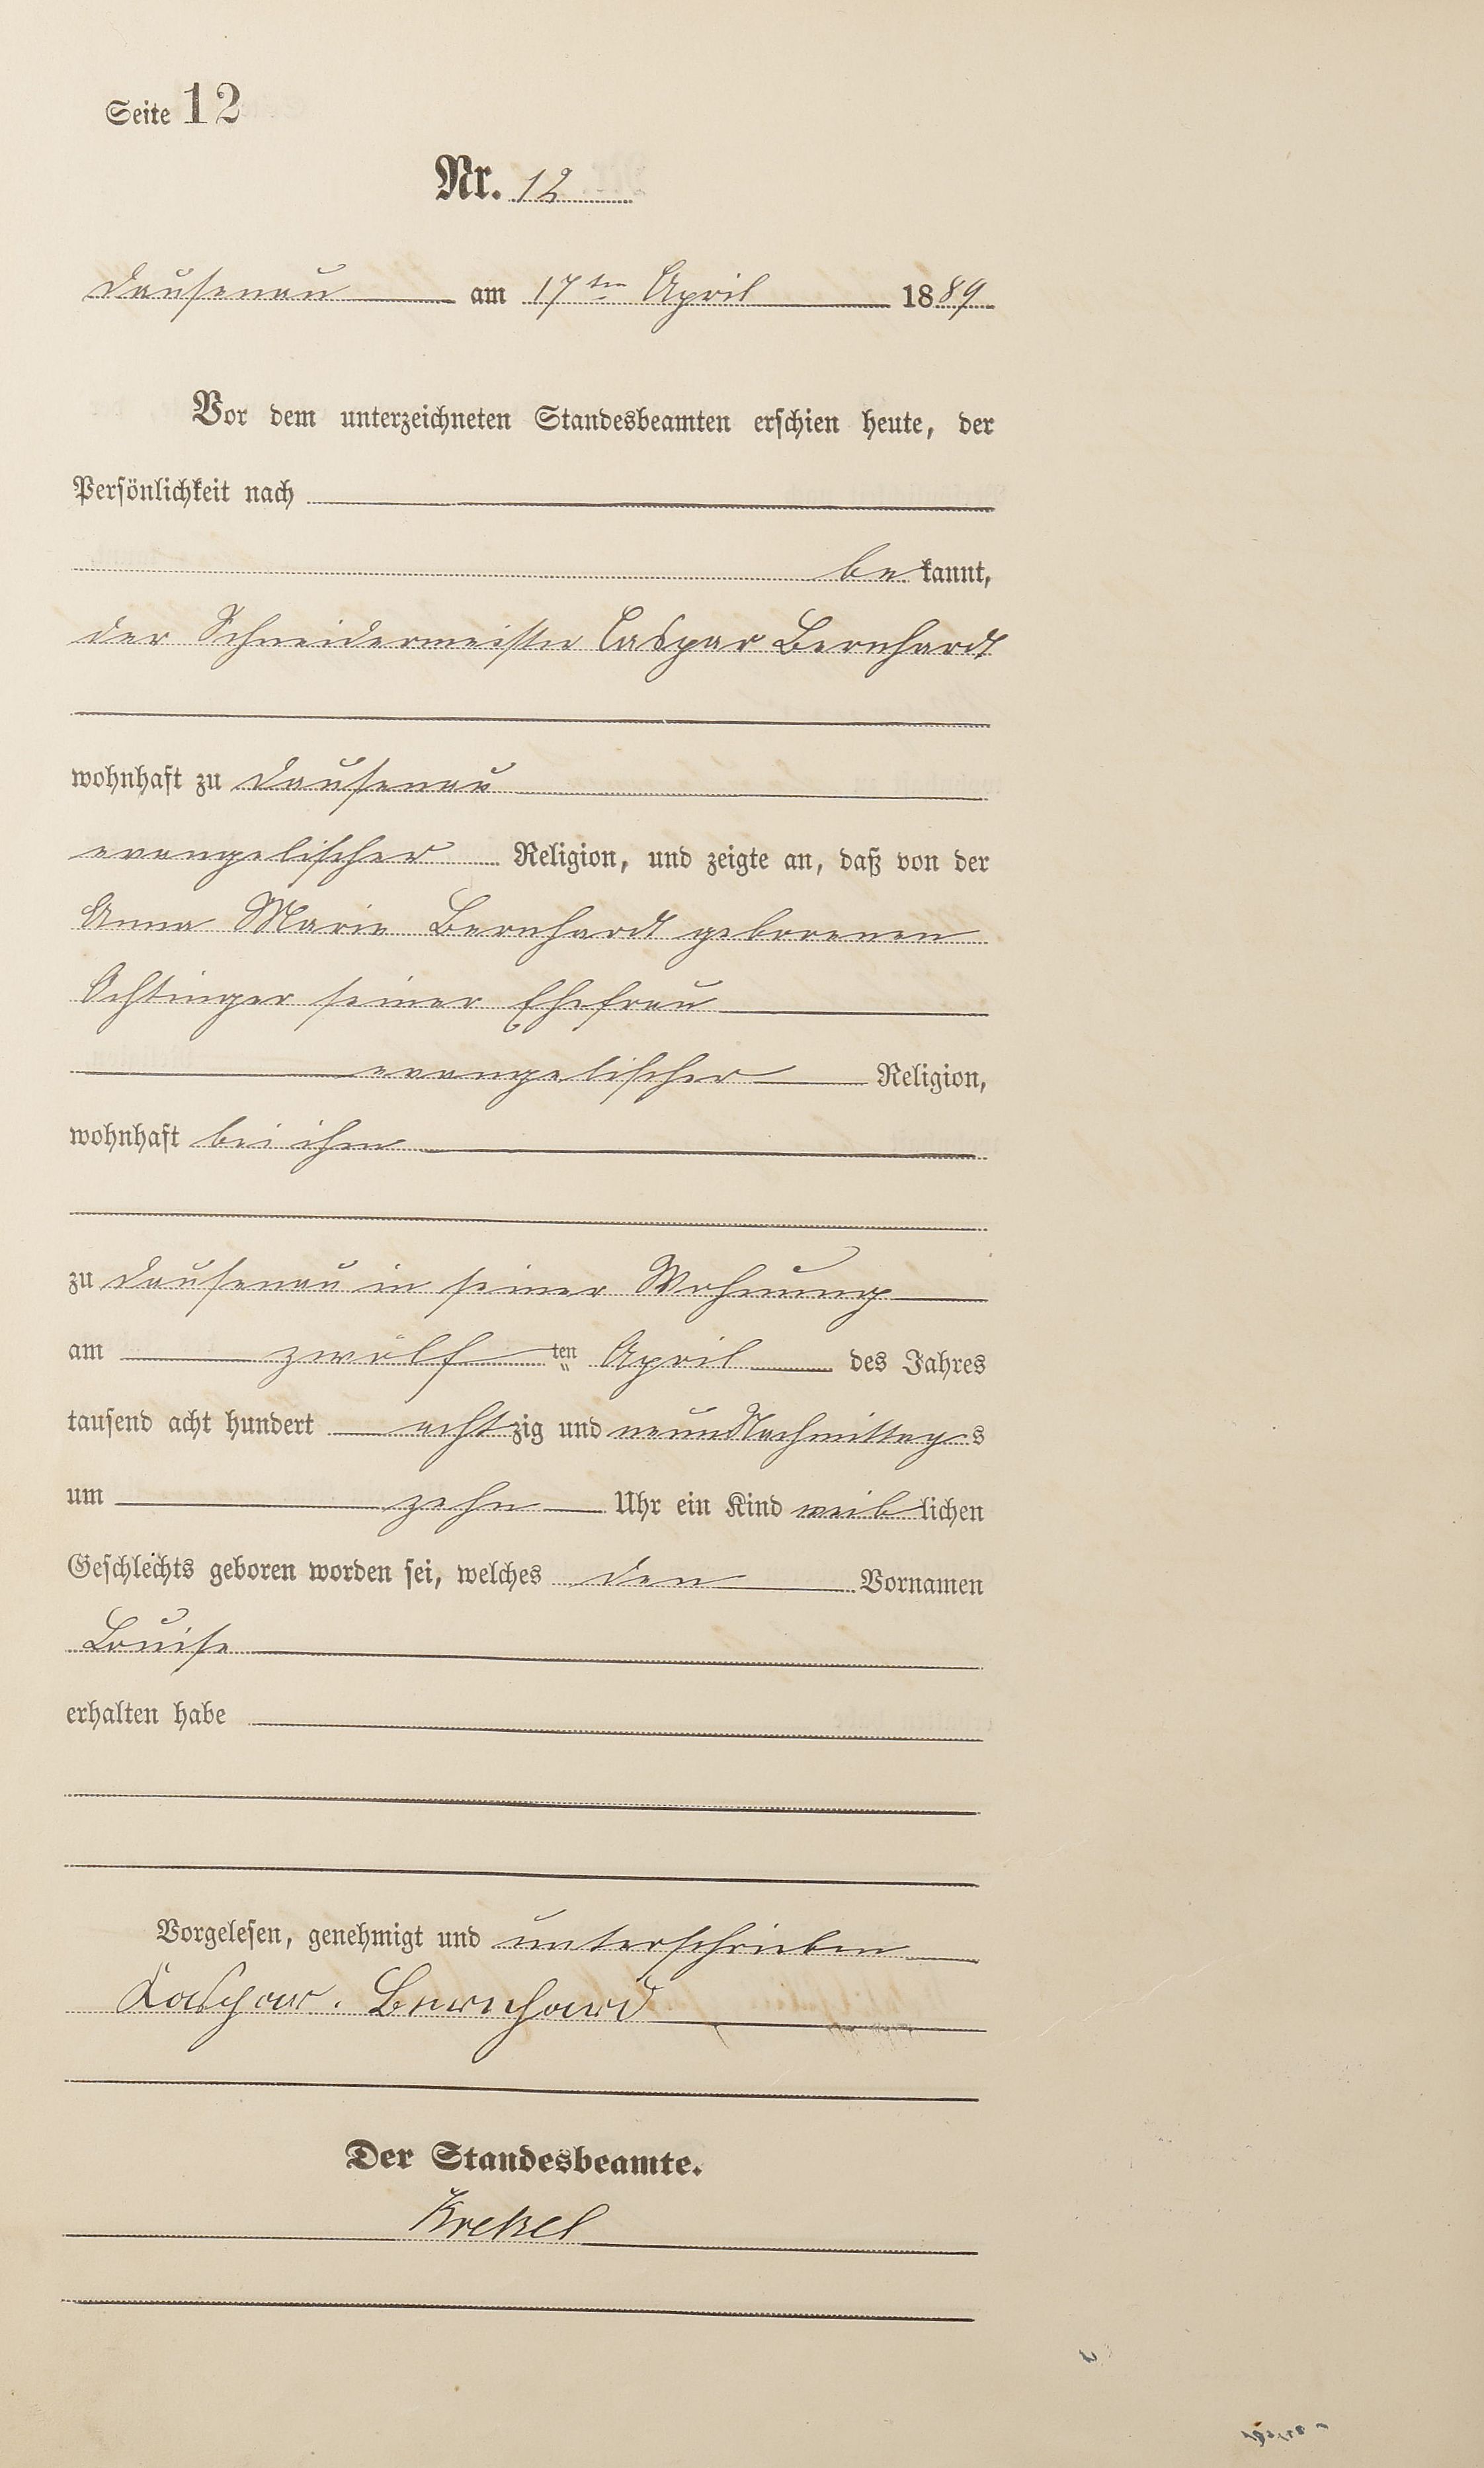 Seite 12
Nr. 12
Dausenau am 17ten April 1889
Vor dem unterzeichneten Standesbeamten erschien heute, der
Persönlichkeit nach
bekannt,
der Schneidermeister Caspar Bernhardt
wohnhaft zu Dausenau
evangelischer Religion, und zeigte an, daß von der
Anna Marie Bernhardt geborenen
Ochtinger seiner Ehefrau
evangelischer Religion,
wohnhaft bei ihm
zu Dausenau in seiner Wohnung
am zwölften April des Jahres
tausend acht hundert achtzig und neun Nachmittags
um zehn Uhr ein Kind weiblichen
Geschlechts geboren worden sei, welches den Vornamen
Louise
erhalten habe
Vorgelesen, genehmigt und unterschrieben
Kaspar. Bernhard
Der Standesbeamte.
Krekel